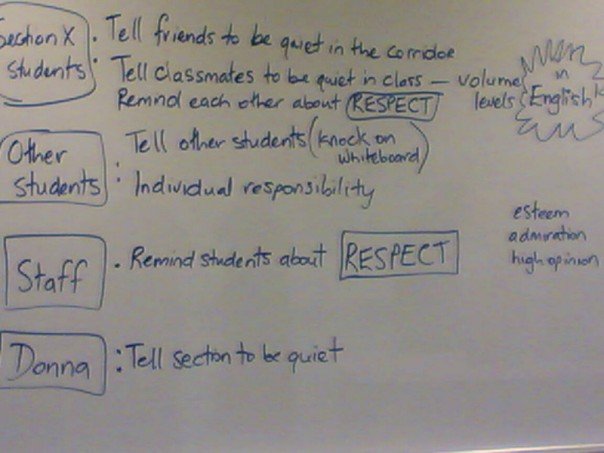 Section X students
• Tell friends to be quiet in the corridor
• Tell classmates to be quiet in class – volume levels
Remind each other about RESPECT
in English
Other students
Tell other students (knock on whiteboard)
: Individual responsibility
esteem
admiration
high opinion
Staff
• Remind students about RESPECT
Donna
: Tell section to be quiet